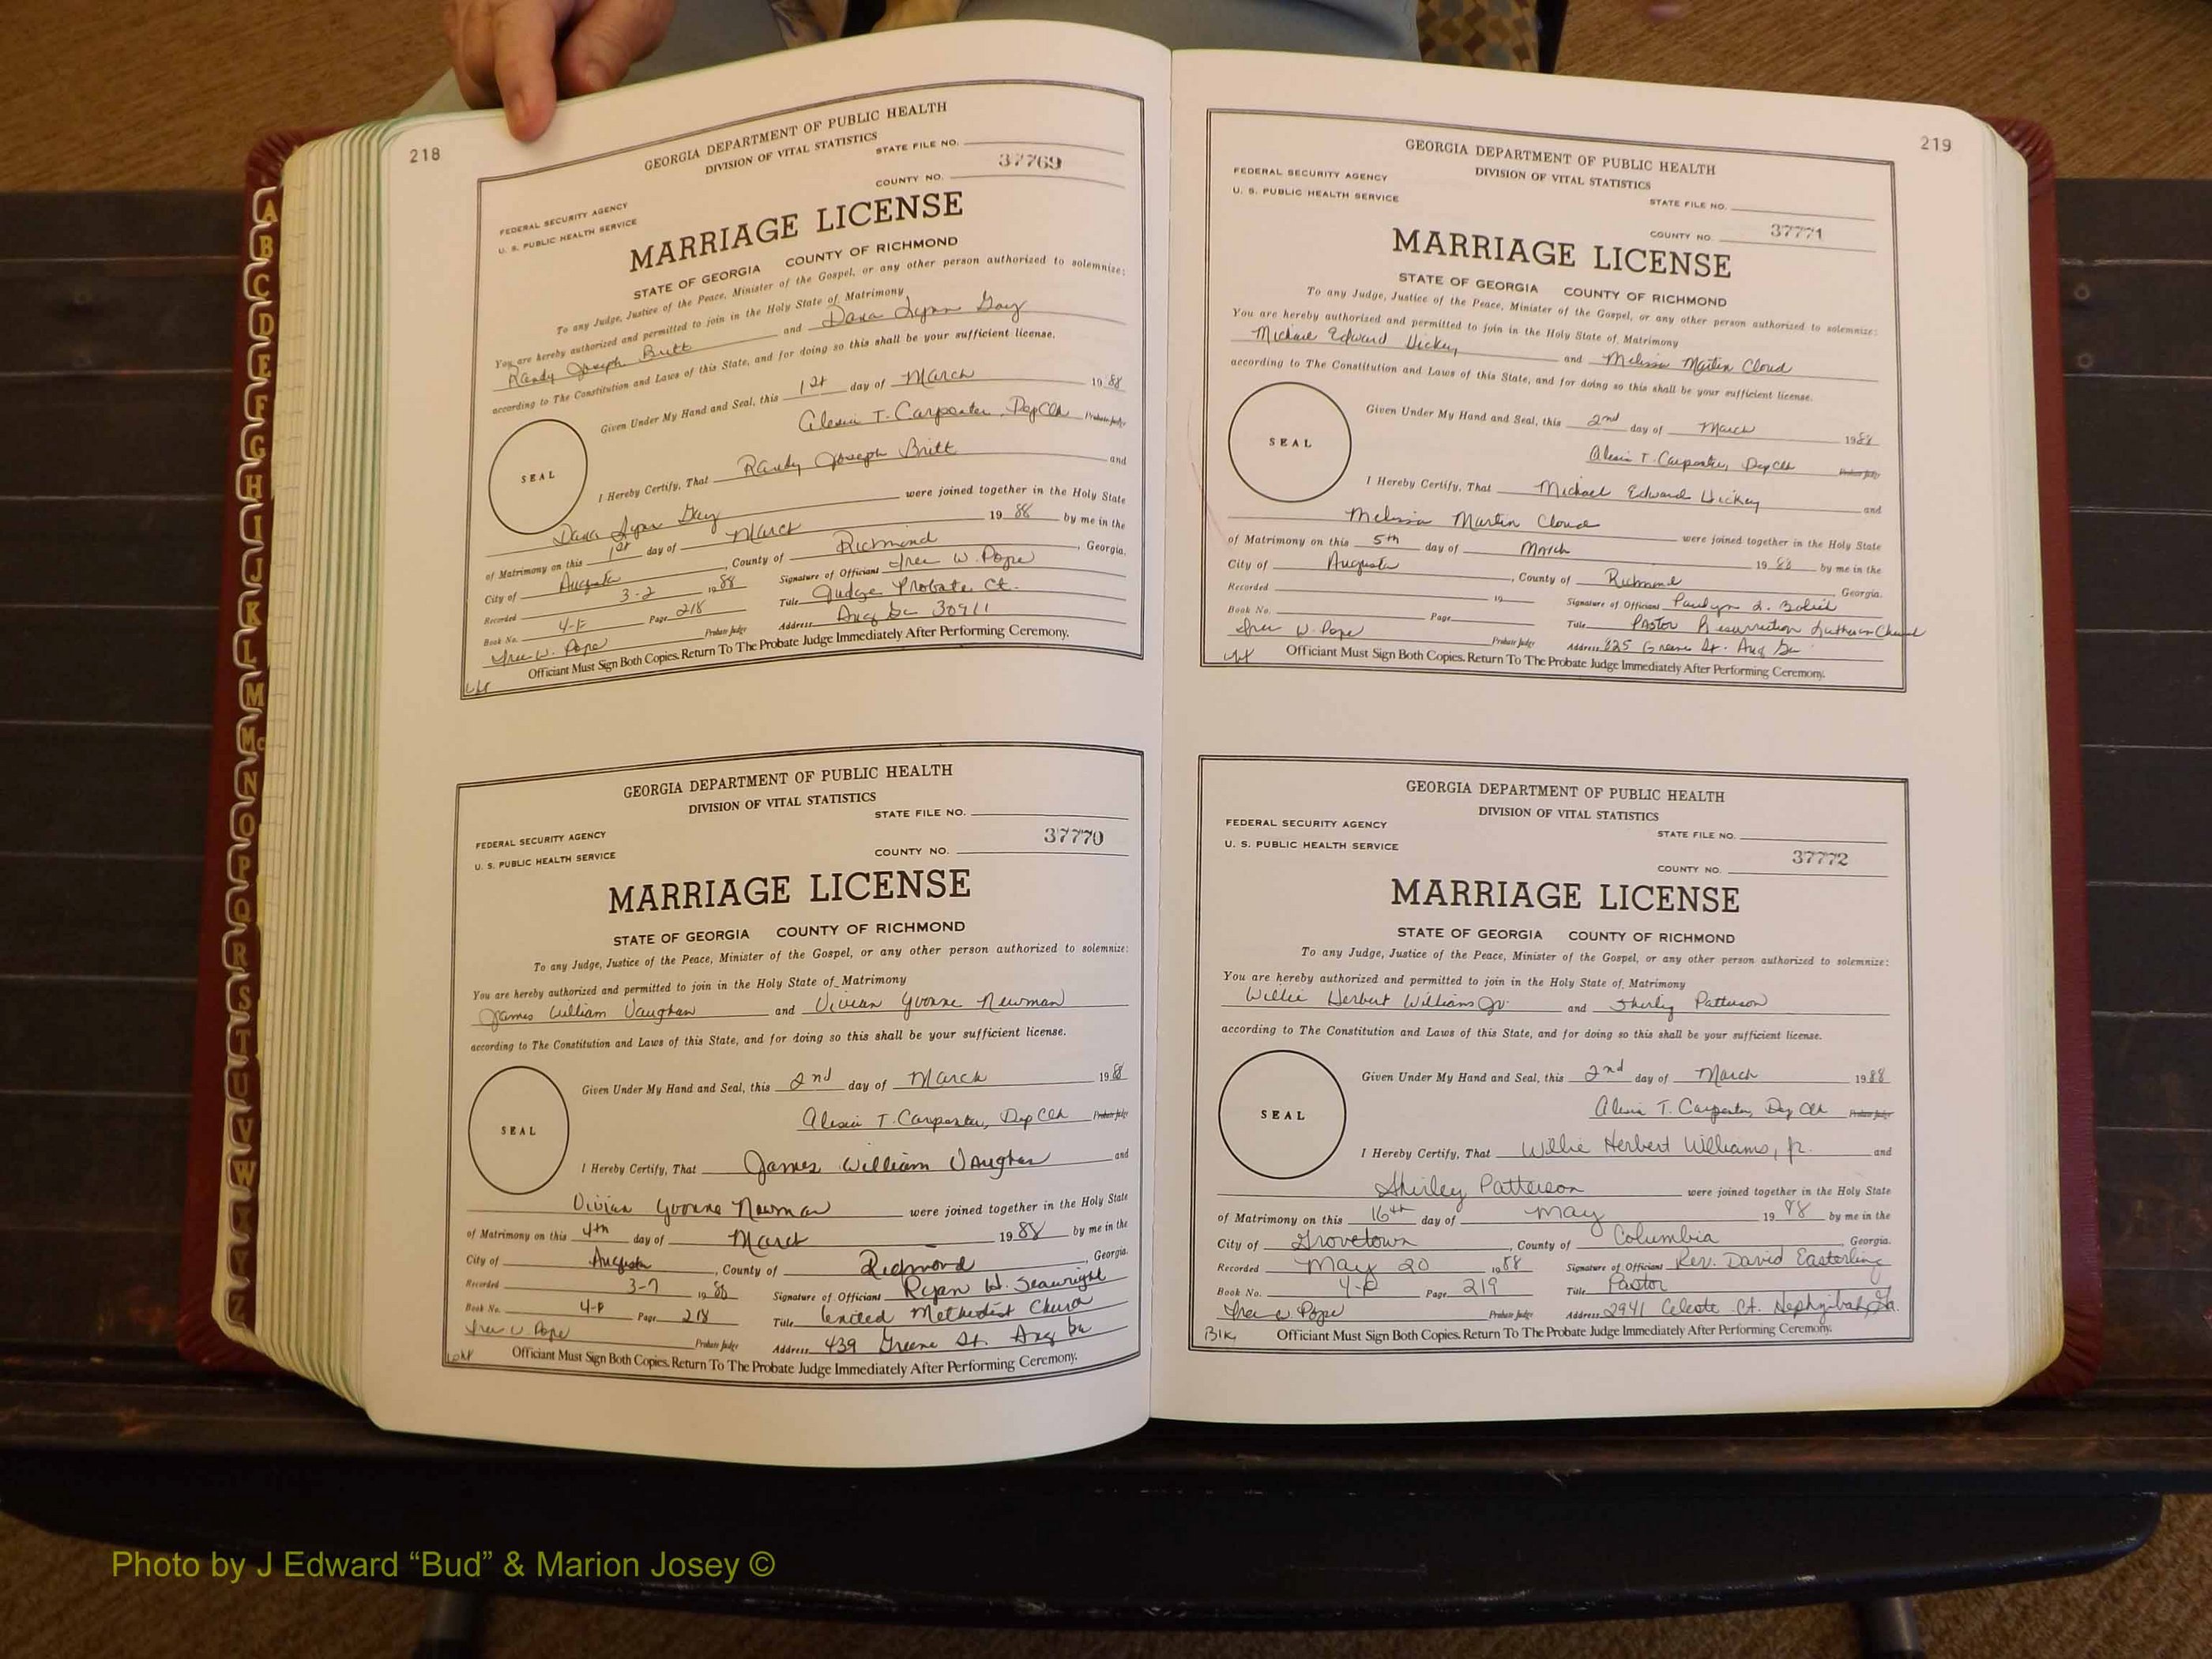 218
GEORGIA DEPARTMENT OF PUBLIC HEALTH
DIVISION OF VITAL STATISTICS
STATE FILE NO.
37769
COUNTY NO.
FEDERAL SECURITY AGENCY
U. S. PUBLIC HEALTH SERVICE
MARRIAGE LICENSE
STATE OF GEORGIA COUNTY OF RICHMOND
To any Judge, Justice of the Peace, Minister of the Gospel, or any other person authorized to solemnize:
You are hereby authorized and permitted to join in the Holy State of Matrimony
Randy Joseph Britt and Dana Lynn Gay
according to The Constitution and Laws of this State, and for doing so this shall be your sufficient license.
Given Under My Hand and Seal, this 1st day of March 1988
Alexia T. Carpenter, Dep Clk Probate Judge
SEAL
I Hereby Certify, That Randy Joseph Britt and
Dana Lynn Gay were joined together in the Holy State
of Matrimony on this 1st day of March 1988 by me in the
City of Augusta, County of Richmond, Georgia.
Recorded 3-2 1988 Signature of Officiant W. Pope
Book No. Page 218 Title Judge Probate Ct.
W. Pope Probate Judge Address Aug Ga 30911
Officiant Must Sign Both Copies. Return To The Probate Judge Immediately After Performing Ceremony.
GEORGIA DEPARTMENT OF PUBLIC HEALTH
DIVISION OF VITAL STATISTICS
STATE FILE NO.
37770
FEDERAL SECURITY AGENCY
U. S. PUBLIC HEALTH SERVICE
COUNTY NO.
MARRIAGE LICENSE
STATE OF GEORGIA COUNTY OF RICHMOND
To any Judge, Justice of the Peace, Minister of the Gospel, or any other person authorized to solemnize:
You are hereby authorized and permitted to join in the Holy State of Matrimony
James William Vaughan and Vivian Yvonne Newman
according to The Constitution and Laws of this State, and for doing so this shall be your sufficient license.
Given Under My Hand and Seal, this 2nd day of March 1988
Alexia T. Carpenter, Dep Clk Probate Judge
SEAL
I Hereby Certify, That James William Vaughan and
Vivian Yvonne Newman were joined together in the Holy State
of Matrimony on this 4th day of March 1988 by me in the
City of Augusta, County of Richmond, Georgia.
Recorded 3-7 1988 Signature of Officiant Ryan W. Seawright
Book No. 4-P Page 218 Title United Methodist Church
W. Pope Probate Judge Address 439 Greene St. Aug Ga
Officiant Must Sign Both Copies. Return To The Probate Judge Immediately After Performing Ceremony.
219
GEORGIA DEPARTMENT OF PUBLIC HEALTH
DIVISION OF VITAL STATISTICS
FEDERAL SECURITY AGENCY
U. S. PUBLIC HEALTH SERVICE
STATE FILE NO.
37771
COUNTY NO.
MARRIAGE LICENSE
STATE OF GEORGIA COUNTY OF RICHMOND
To any Judge, Justice of the Peace, Minister of the Gospel, or any other person authorized to solemnize:
You are hereby authorized and permitted to join in the Holy State of Matrimony
Michael Edward Hickey and Melissa Martin Cloud
according to The Constitution and Laws of this State, and for doing so this shall be your sufficient license.
Given Under My Hand and Seal, this 2nd day of March 1988
Alexia T. Carpenter, Dep Clk Probate Judge
SEAL
I Hereby Certify, That Michael Edward Hickey and
Melissa Martin Cloud were joined together in the Holy State
of Matrimony on this 5th day of March 1988 by me in the
City of Augusta, County of Richmond Georgia.
Recorded 19 Signature of Officiant
Book No. Page Title Pastor Resurrection Lutheran Church
W. Pope Probate Judge Address 825 Greene St. Aug Ga
Officiant Must Sign Both Copies. Return To The Probate Judge Immediately After Performing Ceremony.
GEORGIA DEPARTMENT OF PUBLIC HEALTH
DIVISION OF VITAL STATISTICS
FEDERAL SECURITY AGENCY
U. S. PUBLIC HEALTH SERVICE
STATE FILE NO.
37772
COUNTY NO.
MARRIAGE LICENSE
STATE OF GEORGIA COUNTY OF RICHMOND
To any Judge, Justice of the Peace, Minister of the Gospel, or any other person authorized to solemnize:
You are hereby authorized and permitted to join in the Holy State of Matrimony
Willie Herbert Williams Jr. and Shirley Patterson
according to The Constitution and Laws of this State, and for doing so this shall be your sufficient license.
Given Under My Hand and Seal, this 2nd day of March 1988
Alexia T. Carpenter, Dep Clk Probate Judge
SEAL
I Hereby Certify, That Willie Herbert Williams, Jr. and
Shirley Patterson were joined together in the Holy State
of Matrimony on this 16th day of May 1988 by me in the
City of Grovetown, County of Columbia Georgia.
Recorded May 20 1988 Signature of Officiant Rev. David Easterling
Book No. 4-P Page 219 Title Pastor
W. Pope Probate Judge Address 2941 Celeste Ct. Hephzibah, Ga.
Blk Officiant Must Sign Both Copies. Return To The Probate Judge Immediately After Performing Ceremony.
A
B
C
D
E
F
G
H
I
J
K
L
M
Mc
N
O
P
Q
R
S
T
U
V
W
X
Y
Z
Photo by J Edward “Bud” & Marion Josey ©